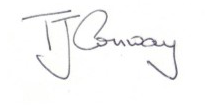 TJ Conway